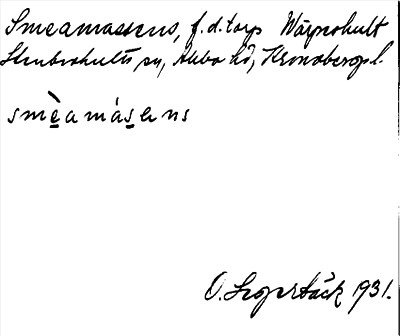 Smeamassens, f.d. torp Vägnohult
Stenbrohults sn, Allbo hd, Kronobergs l.
smèamásens
1931.